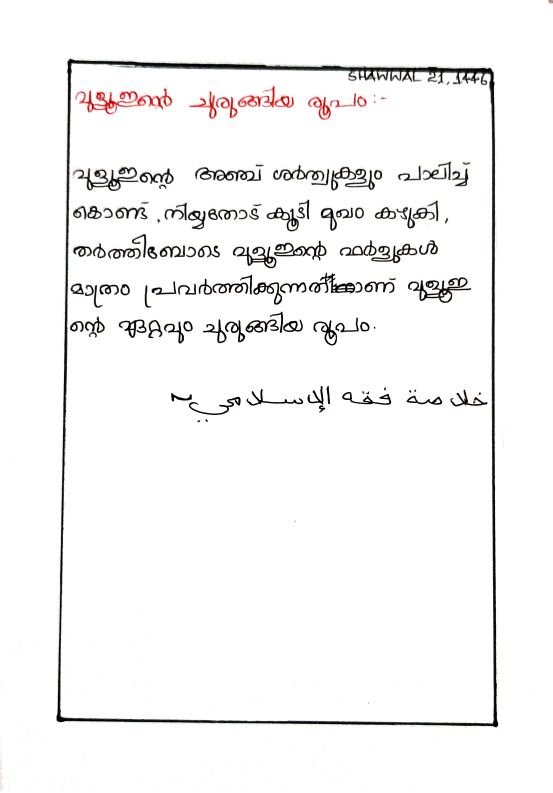 SHAWWAL 21, 1446
വുളൂഇന്റെ ചുരുങ്ങിയ രൂപം :-
വുളൂഇന്റെ അഞ്ച് ശർത്വുകളും പാലിച്ച്
കൊണ്ട്, നിയ്യതോട് കൂടി മുഖം കഴുകി,
തർത്തീബോടെ വുളൂഇന്റെ ഫർളുകൾ
മാത്രം പ്രവർത്തിക്കുന്നതാണ് വുളൂഇ
ന്റെ ഏറ്റവും ചുരുങ്ങിയ രൂപം.
خلاصة فقه الإسلامي ~